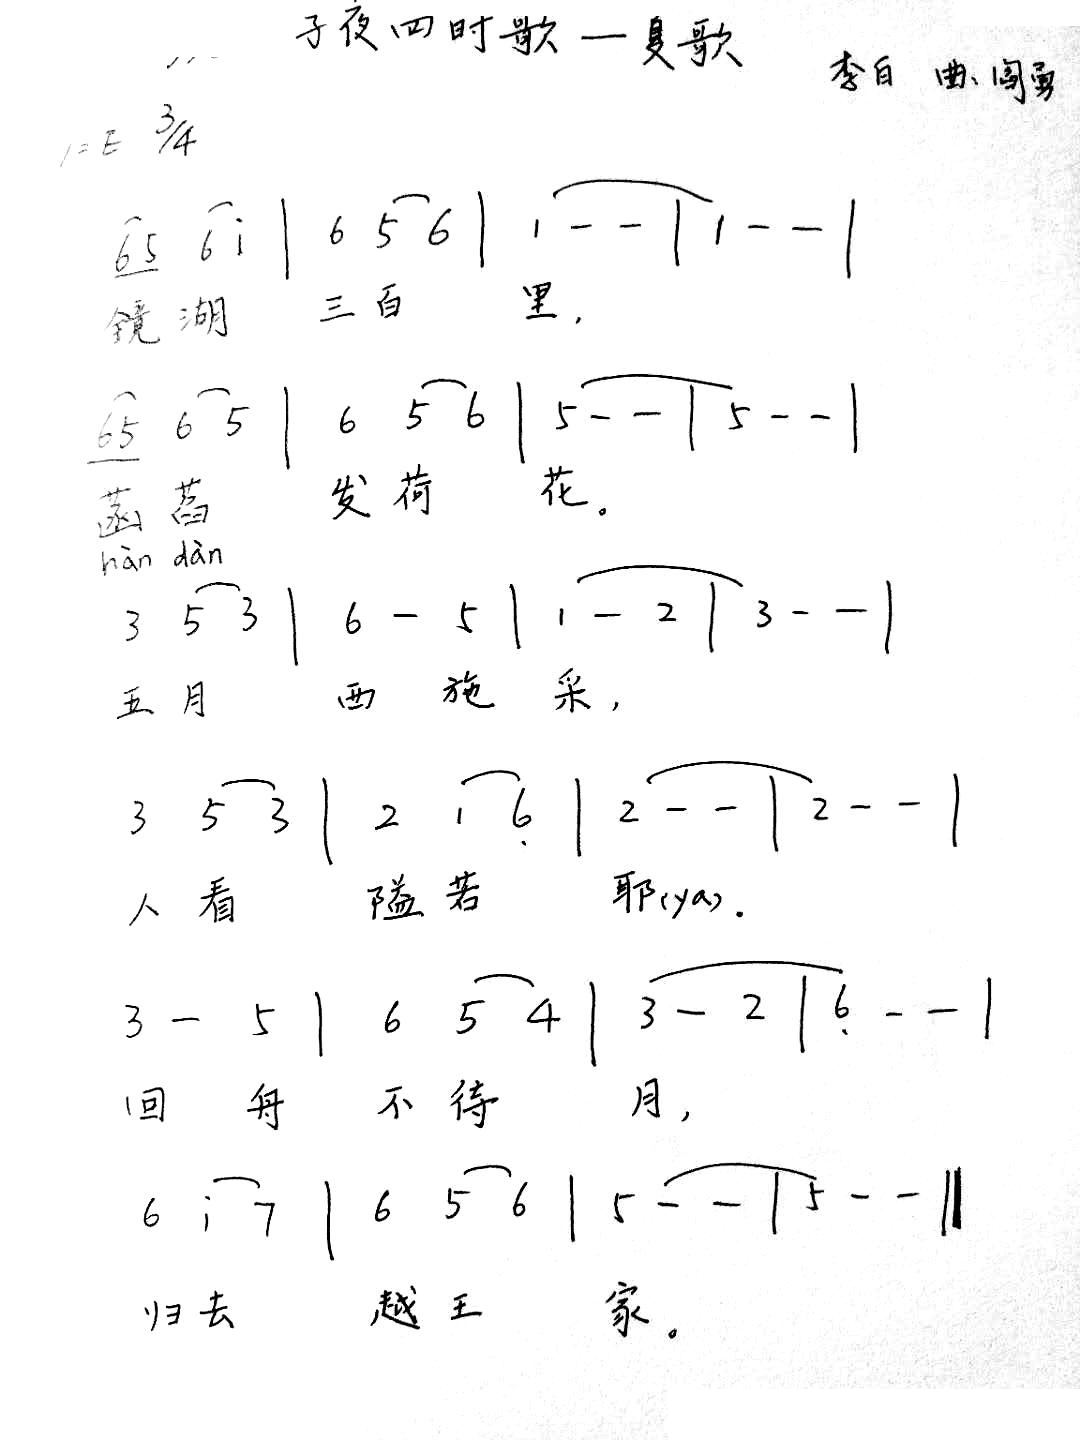 子夜四时歌一夏歌
李白 曲、闾勇
1=E 3/4
65 6i | 6 5 6 | 1 - - | 1 - - |
镜湖 三百 里,
65 6 5 | 6 5 6 | 5 - - | 5 - - |
菡萏 发荷 花。
hàn dàn
3 5 3 | 6 - 5 | 1 - 2 | 3 - - |
五月 西施 采,
3 5 3 | 2 1 6̣ | 2 - - | 2 - - |
人看 隘若 耶(ya).
3 - 5 | 6 5 4 | 3 - 2 | 6̣ - - |
回舟 不待 月,
6 i 7 | 6 5 6 | 5 - - | 5 - - ‖
归去 越王 家。